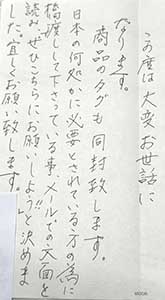 この度は大変お世話に
なります。
商品のタグも同封致します。
日本の何処かに必要とされている方の為に
橋渡しして下さっている事、メールでの文面を
読み、ぜひこちらにお願いしよう!!と決めま
した。宜しくお願い致します。
MIDORI